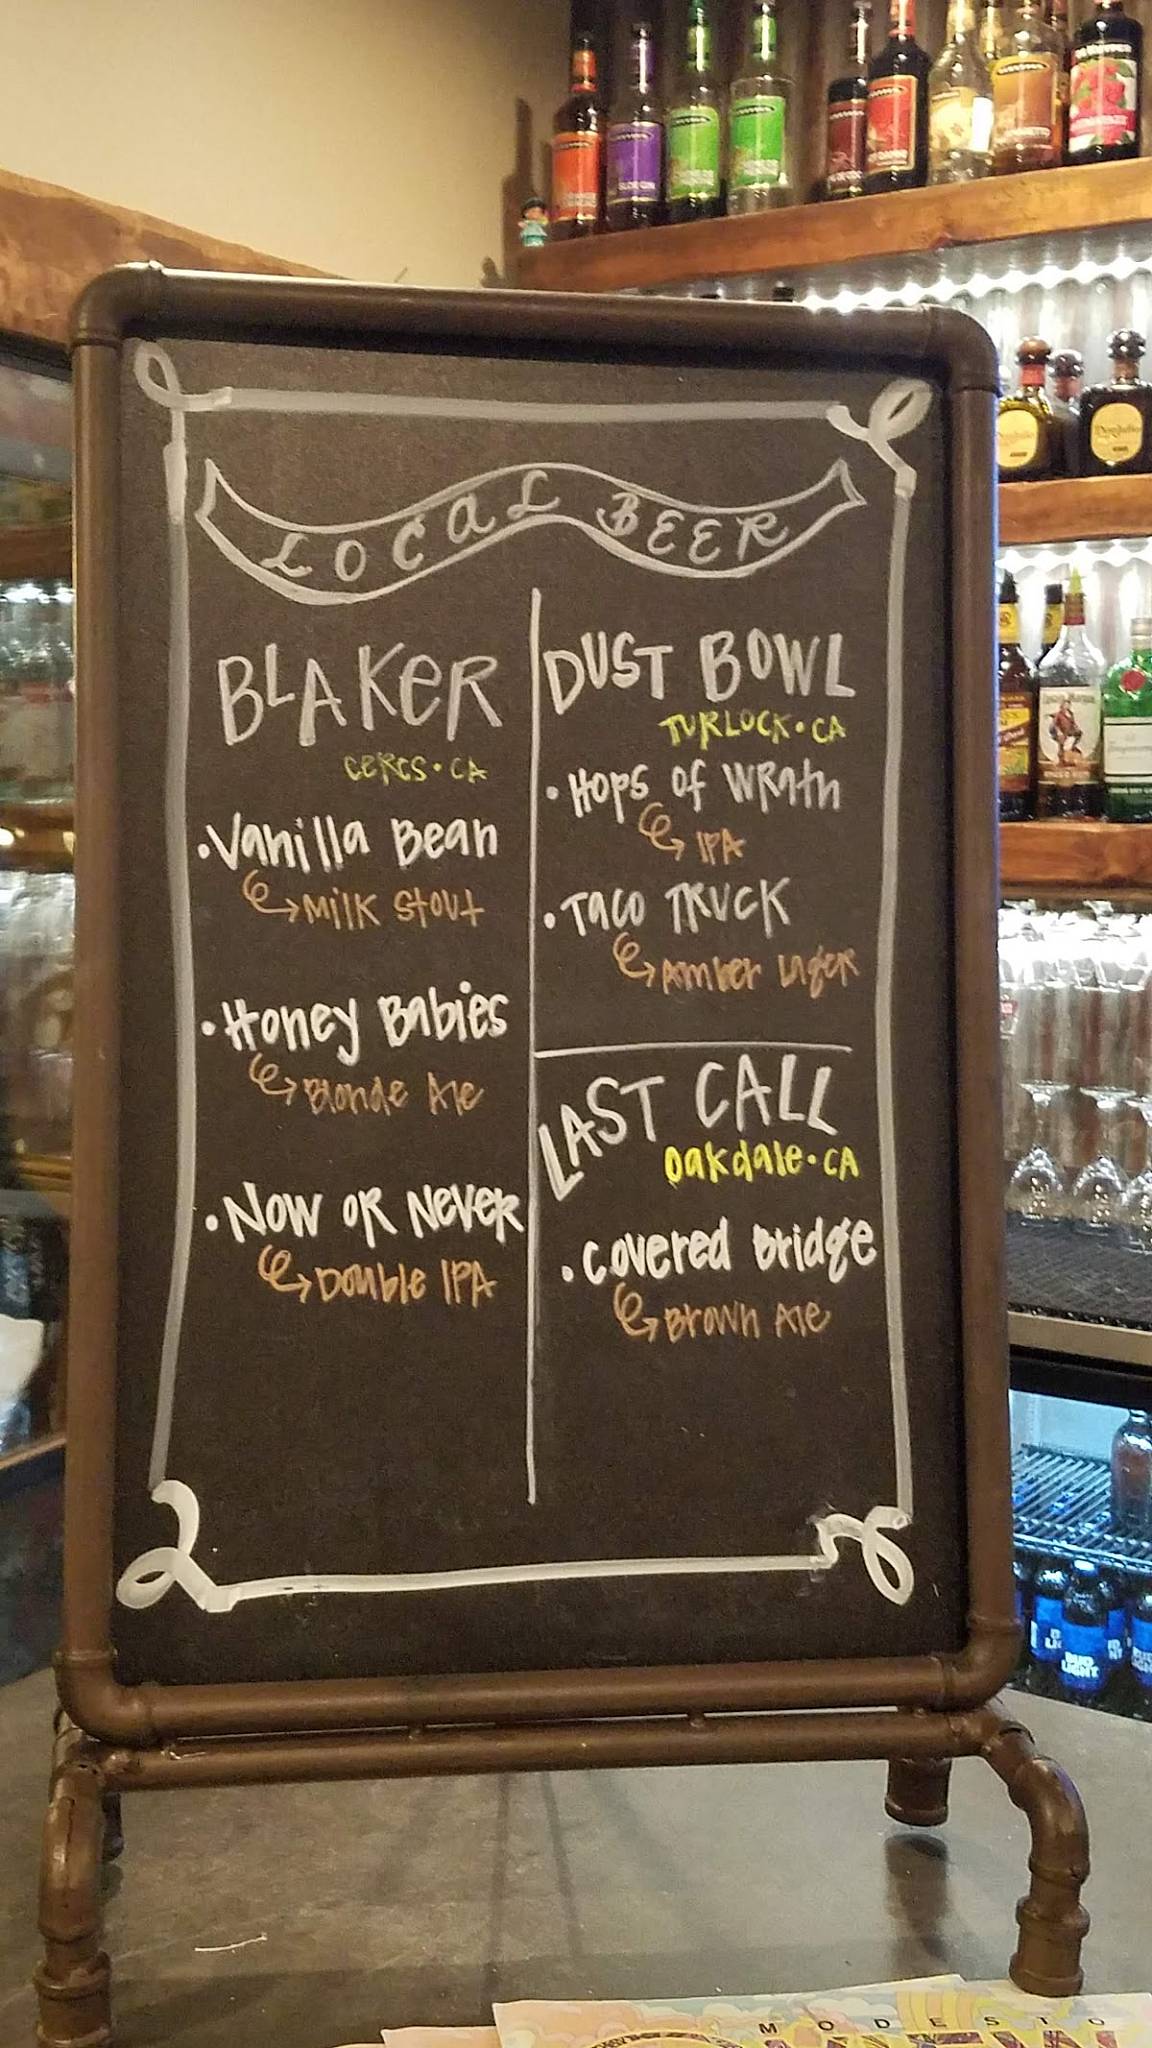 LOCAL BEER
BLAKER
CERCS • CA
• Vanilla Bean
Milk Stout
• Honey Babies
Blonde Ale
• Now or Never
Double IPA
DUST BOWL
TURLOCK • CA
• Hops of Wrath
IPA
• Taco Truck
Amber Lager
LAST CALL
Oakdale • CA
• Covered Bridge
Brown Ale
Don Julio
BUD LIGHT
MODESTO